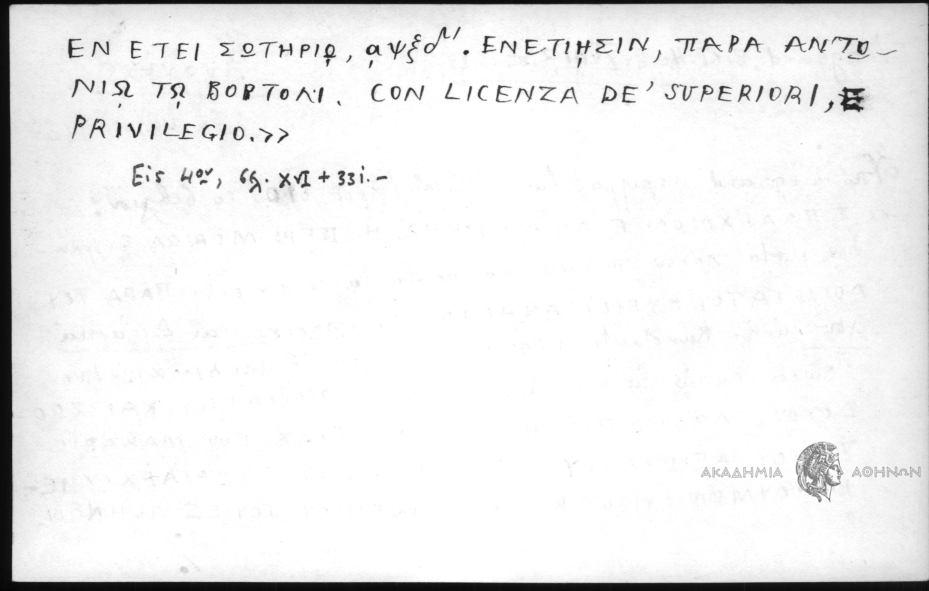 ΕΝ ΕΤΕΙ ΣΩΤΗΡΙῼ, ͵αψξδʹ. ΕΝΕΤΙΗΣΙΝ, ΠΑΡΑ ΑΝΤΩ-
ΝΙῼ Τῼ ΒΟΡΤΟΛΙ. CON LICENZA DE' SUPERIORI, E
PRIVILEGIO.»
Εἰς 4ον, σς. XVI + 331.-
ΑΚΑΔΗΜΙΑ ΑΘΗΝΩΝ